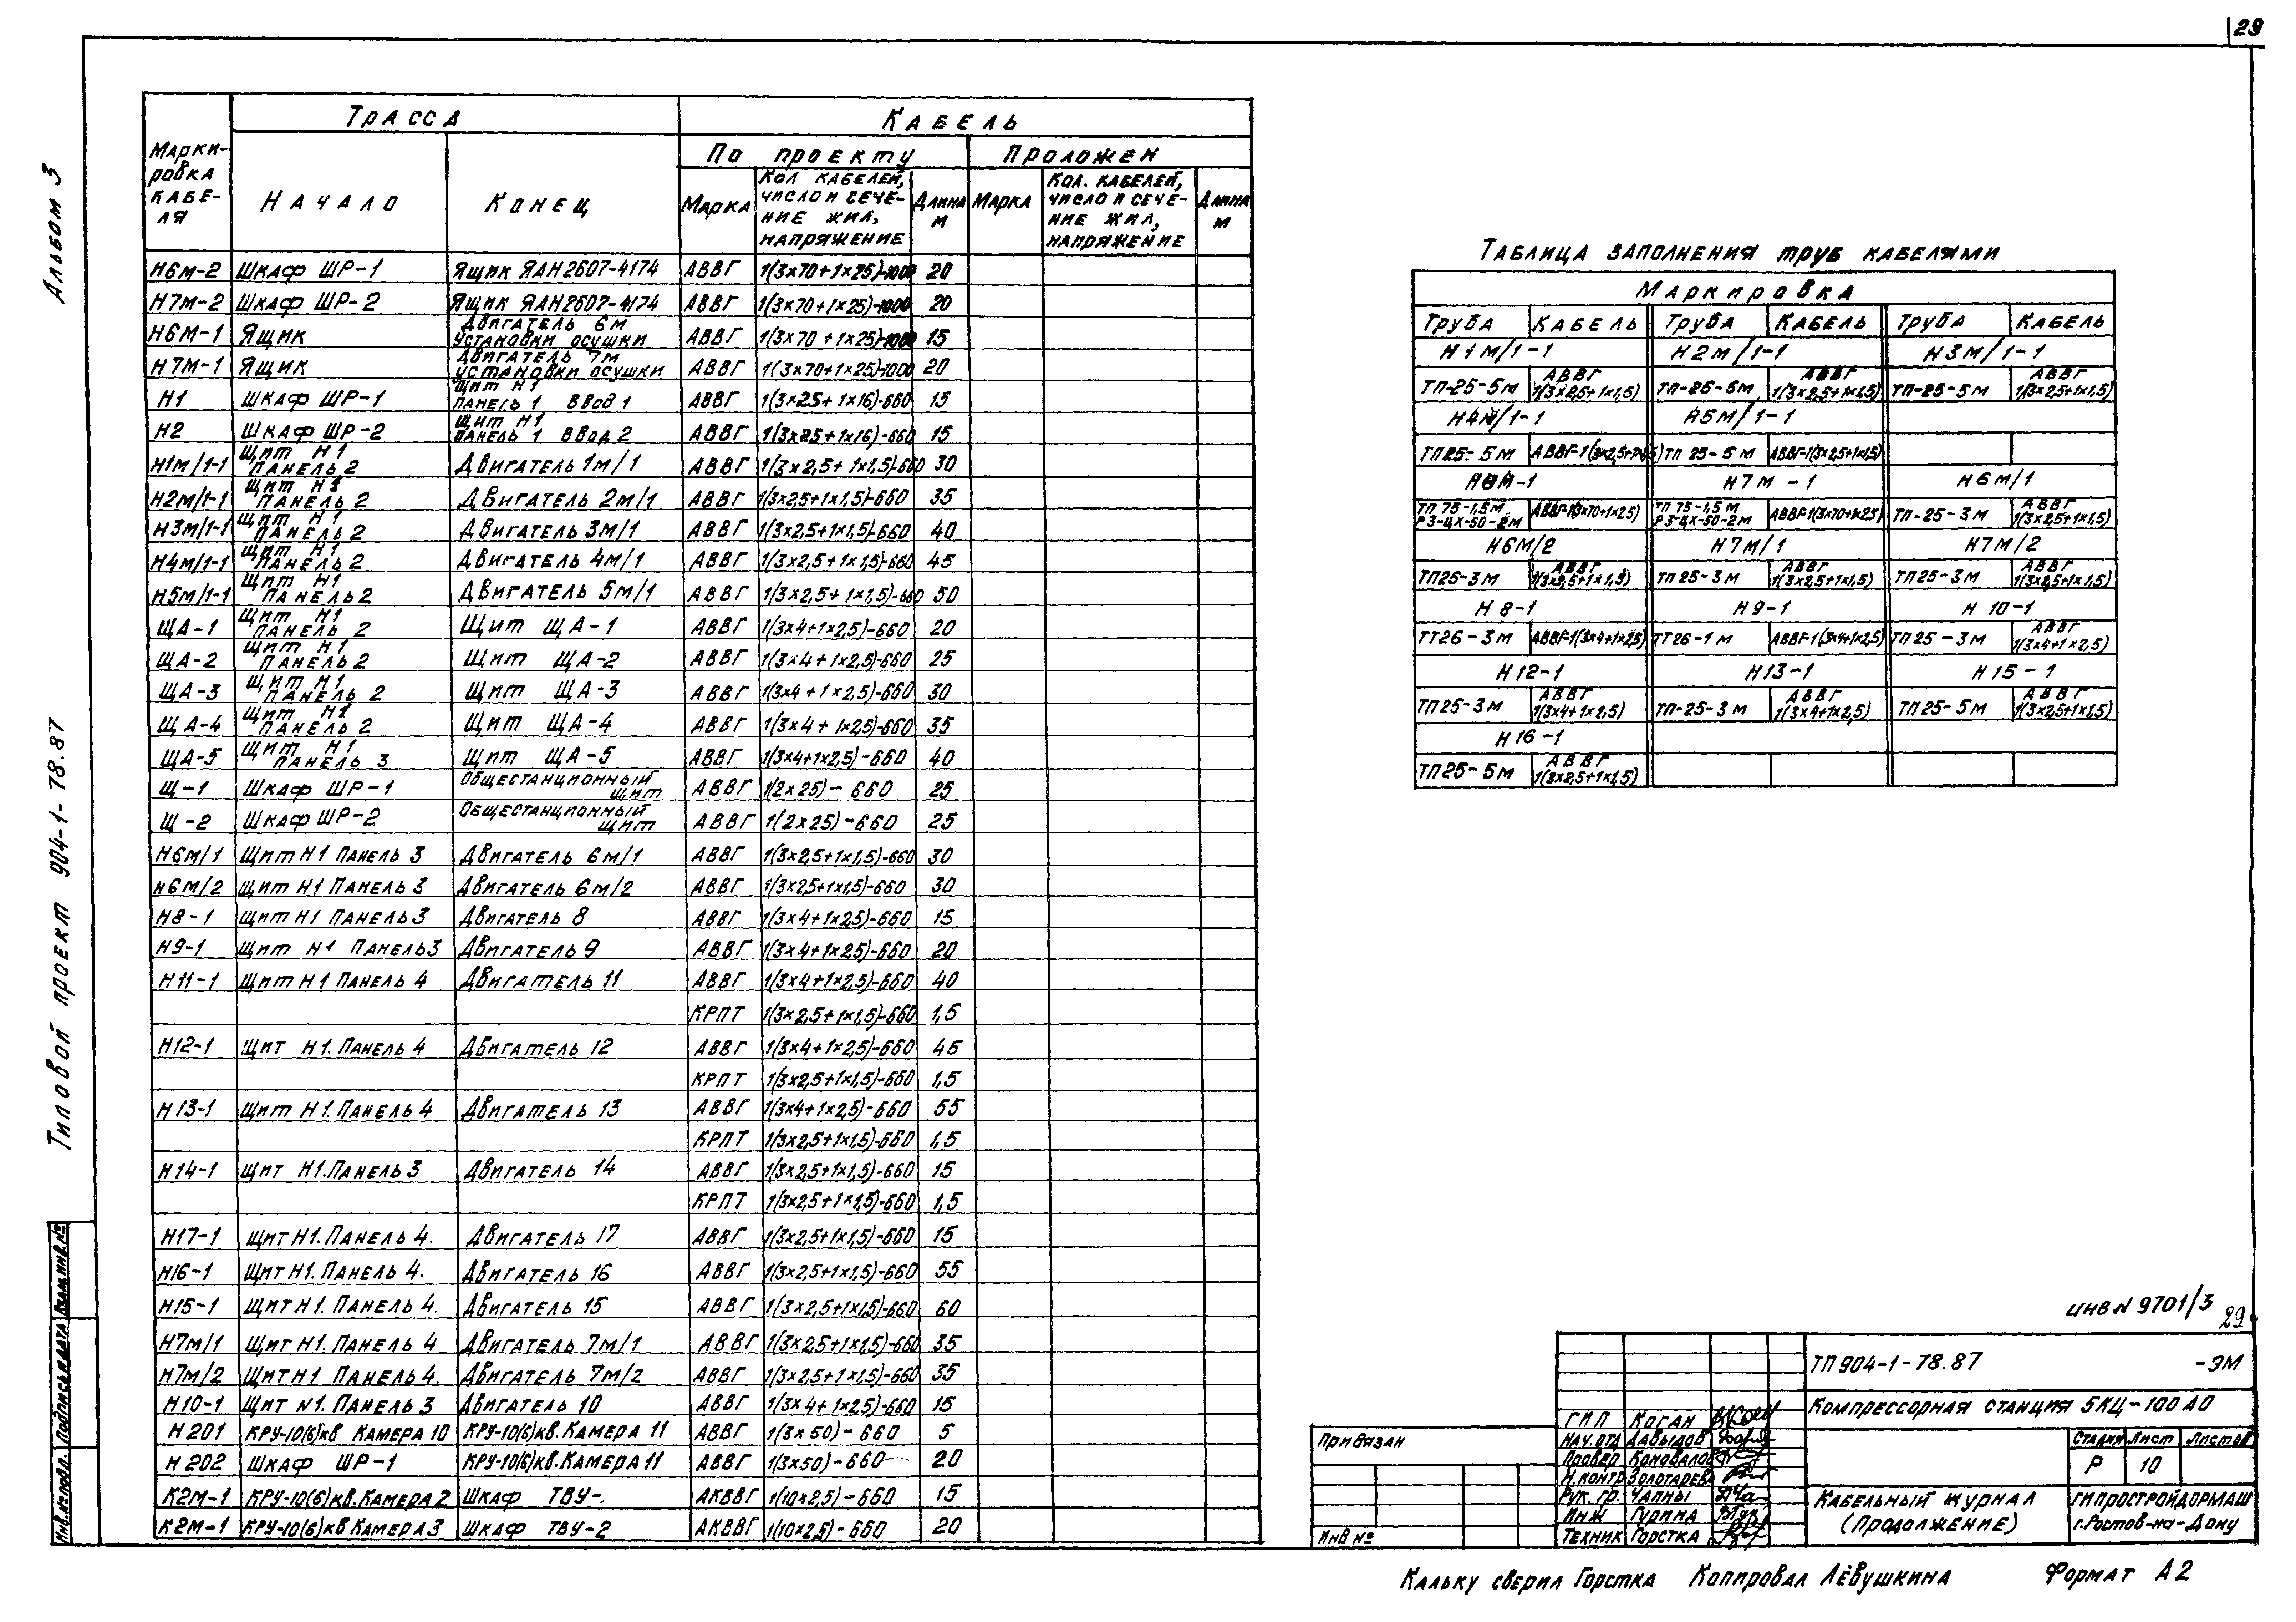 29
Альбом 3
Типовой проект 904-1-78.87
Инв.№ подл. Подпись и дата Взам.инв.№
Маркировка кабеля | Трасса | Кабель
По проекту | Проложен
Начало | Конец | Марка | Кол. кабелей, число и сечение жил, напряжение | Длина м | Марка | Кол. кабелей, число и сечение жил, напряжение | Длина м
Н6м-2 Шкаф ШР-1 Ящик ЯАН2607-4174 АВВГ 1(3×70+1×25)-1000 20
Н7м-2 Шкаф ШР-2 Ящик ЯАН2607-4174 АВВГ 1(3×70+1×25)-1000 20
Н6м-1 Ящик Двигатель 6м установки осушки АВВГ 1(3×70+1×25)-1000 15
Н7м-1 Ящик Двигатель 7м установки осушки АВВГ 1(3×70+1×25)-1000 20
Н1 Шкаф ШР-1 Щит Н1 панель 1 Ввод 1 АВВГ 1(3×25+1×16)-660 15
Н2 Шкаф ШР-2 Щит Н1 панель 1 Ввод 2 АВВГ 1(3×25+1×16)-660 15
Н1м/1-1 Щит Н1 панель 2 Двигатель 1м/1 АВВГ 1(3×2,5+1×1,5)-660 30
Н2м/1-1 Щит Н1 панель 2 Двигатель 2м/1 АВВГ 1(3×2,5+1×1,5)-660 35
Н3м/1-1 Щит Н1 панель 2 Двигатель 3м/1 АВВГ 1(3×2,5+1×1,5)-660 40
Н4м/1-1 Щит Н1 панель 2 Двигатель 4м/1 АВВГ 1(3×2,5+1×1,5)-660 45
Н5м/1-1 Щит Н1 панель 2 Двигатель 5м/1 АВВГ 1(3×2,5+1×1,5)-660 50
ЩА-1 Щит Н1 панель 2 Щит ЩА-1 АВВГ 1(3×4+1×2,5)-660 20
ЩА-2 Щит Н1 панель 2 Щит ЩА-2 АВВГ 1(3×4+1×2,5)-660 25
ЩА-3 Щит Н1 панель 2 Щит ЩА-3 АВВГ 1(3×4+1×2,5)-660 30
ЩА-4 Щит Н1 панель 2 Щит ЩА-4 АВВГ 1(3×4+1×2,5)-660 35
ЩА-5 Щит Н1 панель 3 Щит ЩА-5 АВВГ 1(3×4+1×2,5)-660 40
Щ-1 Шкаф ШР-1 Общестанционный щит АВВГ 1(2×25)-660 25
Щ-2 Шкаф ШР-2 Общестанционный щит АВВГ 1(2×25)-660 25
Н6м/1 Щит Н1 Панель 3 Двигатель 6м/1 АВВГ 1(3×2,5+1×1,5)-660 30
Н6м/2 Щит Н1 Панель 3 Двигатель 6м/2 АВВГ 1(3×2,5+1×1,5)-660 30
Н8-1 Щит Н1 Панель 3 Двигатель 8 АВВГ 1(3×4+1×2,5)-660 15
Н9-1 Щит Н1 Панель 3 Двигатель 9 АВВГ 1(3×4+1×2,5)-660 20
Н11-1 Щит Н1 Панель 4 Двигатель 11 АВВГ 1(3×4+1×2,5)-660 40
КРПТ 1(3×2,5+1×1,5)-660 1,5
Н12-1 Щит Н1. Панель 4 Двигатель 12 АВВГ 1(3×4+1×2,5)-660 45
КРПТ 1(3×2,5+1×1,5)-660 1,5
Н13-1 Щит Н1. Панель 4 Двигатель 13 АВВГ 1(3×4+1×2,5)-660 55
КРПТ 1(3×2,5+1×1,5)-660 1,5
Н14-1 Щит Н1. Панель 3 Двигатель 14 АВВГ 1(3×2,5+1×1,5)-660 15
КРПТ 1(3×2,5+1×1,5)-660 1,5
Н17-1 Щит Н1. Панель 4. Двигатель 17 АВВГ 1(3×2,5+1×1,5)-660 15
Н16-1 Щит Н1. Панель 4. Двигатель 16 АВВГ 1(3×2,5+1×1,5)-660 55
Н15-1 Щит Н1. Панель 4. Двигатель 15 АВВГ 1(3×2,5+1×1,5)-660 60
Н7м/1 Щит Н1. Панель 4 Двигатель 7м/1 АВВГ 1(3×2,5+1×1,5)-660 35
Н7м/2 Щит Н1 Панель 4. Двигатель 7м/2 АВВГ 1(3×2,5+1×1,5)-660 35
Н10-1 Щит N1. Панель 3 Двигатель 10 АВВГ 1(3×4+1×2,5)-660 15
Н201 КРУ-10(6)кв Камера 10 КРУ-10(6)кв. Камера 11 АВВГ 1(3×50)-660 5
Н202 Шкаф ШР-1 КРУ-10(6)кв. Камера 11 АВВГ 1(3×50)-660 20
К2М-1 КРУ-10(6)кв. Камера 2 Шкаф ТВУ-. АКВВГ 1(10×2,5)-660 15
К2М-1 КРУ-10(6)кв Камера 3 Шкаф ТВУ-2 АКВВГ 1(10×2,5)-660 20
Таблица заполнения труб кабелями
Маркировка
Труба Кабель Труба Кабель Труба Кабель
Н1м/1-1 Н2м/1-1 Н3м/1-1
ТП-25-5м АВВГ 1(3×2,5+1×1,5) ТП-25-5м АВВГ 1(3×2,5+1×1,5) ТП-25-5м АВВГ 1(3×2,5+1×1,5)
Н4м/1-1 Н5м/1-1
ТП25-5м АВВГ-1(3×2,5+1×1,5) ТП 25-5м АВВГ-1(3×2,5+1×1,5)
Н7м-1 Н6м/1
ТП 75-1,5м РЗ-ЦХ-50-2м АВВГ-1(3×70+1×25) ТП 75-1,5м РЗ-ЦХ-50-2м АВВГ-1(3×70+1×25) ТП-25-3м АВВГ 1(3×2,5+1×1,5)
Н6м/2 Н7м/1 Н7м/2
ТП25-3м АВВГ 1(3×2,5+1×1,5) ТП 25-3м АВВГ 1(3×2,5+1×1,5) ТП25-3м АВВГ 1(3×2,5+1×1,5)
Н8-1 Н9-1 Н10-1
ТТ26-3м АВВГ-1(3×4+1×2,5) ТТ26-1м АВВГ-1(3×4+1×2,5) ТП25-3м АВВГ 1(3×4+1×2,5)
Н12-1 Н13-1 Н15-1
ТП25-3м АВВГ 1(3×4+1×2,5) ТП-25-3м АВВГ 1(3×4+1×2,5) ТП25-5м АВВГ 1(3×2,5+1×1,5)
Н16-1
ТП25-5м АВВГ 1(3×2,5+1×1,5)
инв N 9701/3
29
ТП904-1-78.87 -ЭМ
Компрессорная станция 5КЦ-100А0
Стадия Лист Листов
Р 10
Кабельный журнал (Продолжение)
Гипростройдормаш г.Ростов-на-Дону
ГИП Коган
Нач.отд Давыдов
Провер Коновалов
Н.контр Золотарев
Рук. гр. Чапны
Инж Гурина
Техник Горстка
Привязан
Инв №
Кальку сверил Горстка Копировал Лёвушкина Формат А2